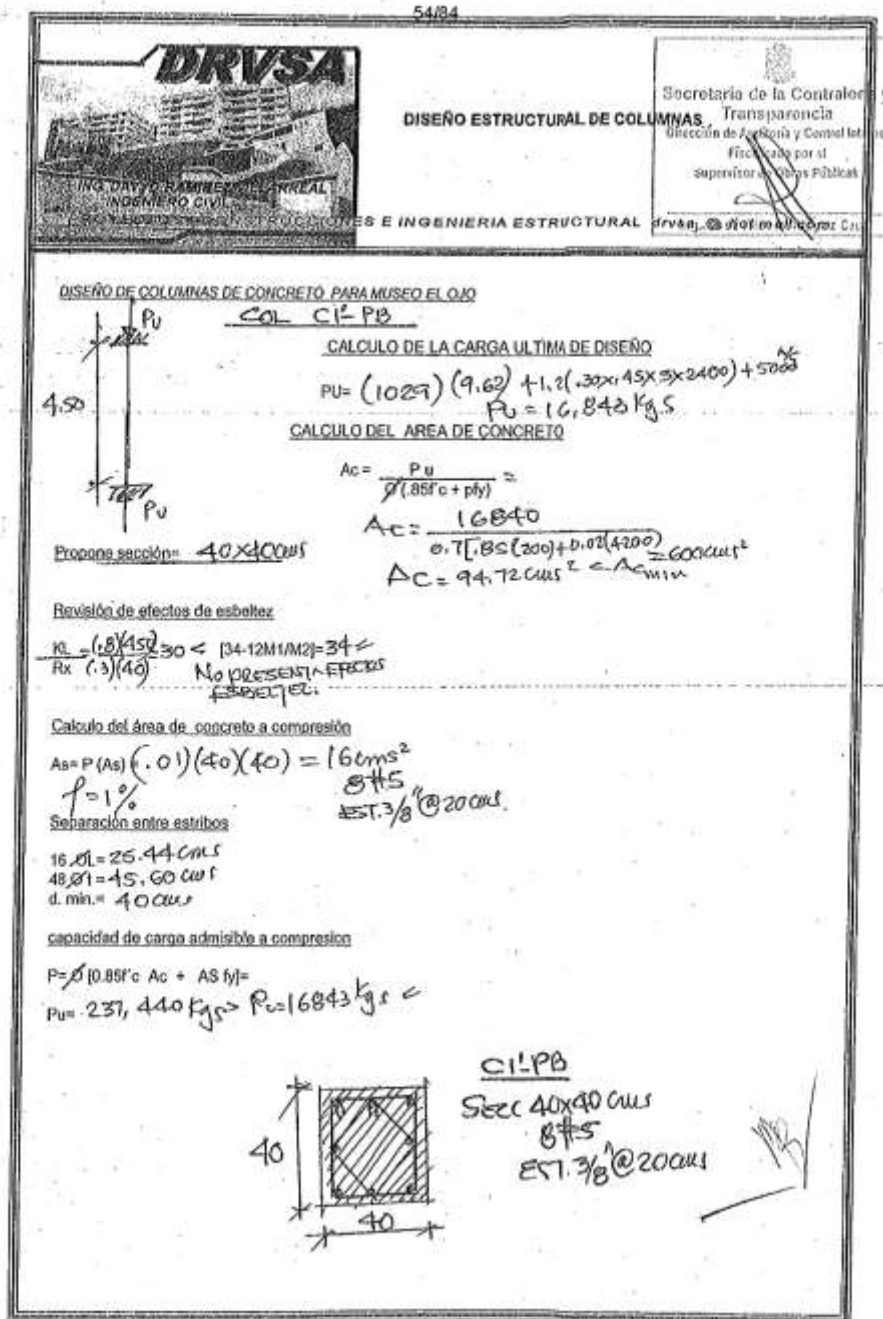 54/84
DRVSA
ING. DAVID RAMIREZ VILLARREAL
INGENIERO CIVIL
DISEÑO ESTRUCTURAL DE COLUMNAS
Secretaría de la Contraloría y
Transparencia
Dirección de Auditoría y Control
Fiscalizado por el
Supervisor de Obras Públicas
CONSTRUCCIONES E INGENIERIA ESTRUCTURAL
DISEÑO DE COLUMNAS DE CONCRETO PARA MUSEO EL OJO
COL C1'-PB
Pu
4.50
Pu
CALCULO DE LA CARGA ULTIMA DE DISEÑO
PU= (1029) (9.62) + 1.2(.30x.45x3x2400) + 5000
Pu = 16,843 Kg.s
CALCULO DEL AREA DE CONCRETO
Ac = Pu / Ø(.85f'c + pfy) =
Ac = 16840 / 0.7[.85(200)+0.02(4200) = 600cms²
Ac = 94.72 cms² < Acmin
Propone sección= 40x40cms
Revisión de efectos de esbeltez
KL / Rx = (.8)(450) / (.3)(40) = 30 < [34-12M1/M2]= 34 <
No PRESENTA EFECTOS
ESBELTEZ.
Calculo del área de concreto a compresión
As= P (As) (.01)(40)(40) = 16cms²
ρ=1%
8#5
EST. 3/8"@20cms.
Separación entre estribos
16 ØL= 25.44 cms
48 Ø1= 45.60 cms
d. min.= 40cms
capacidad de carga admisible a compresion
P= Ø [0.85f'c Ac + AS fy]=
Pu= 237,440 Kgs > Pu=16843 Kgs <
C1'-PB
Secc 40x40 cms
8#5
EST. 3/8"@20cms
40
40